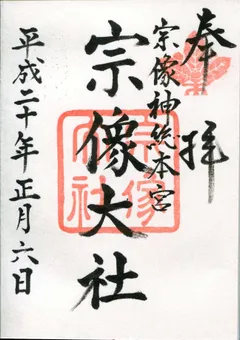 奉拝
宗像神総本宮
宗像大社
平成二十年正月六日
宗像大社